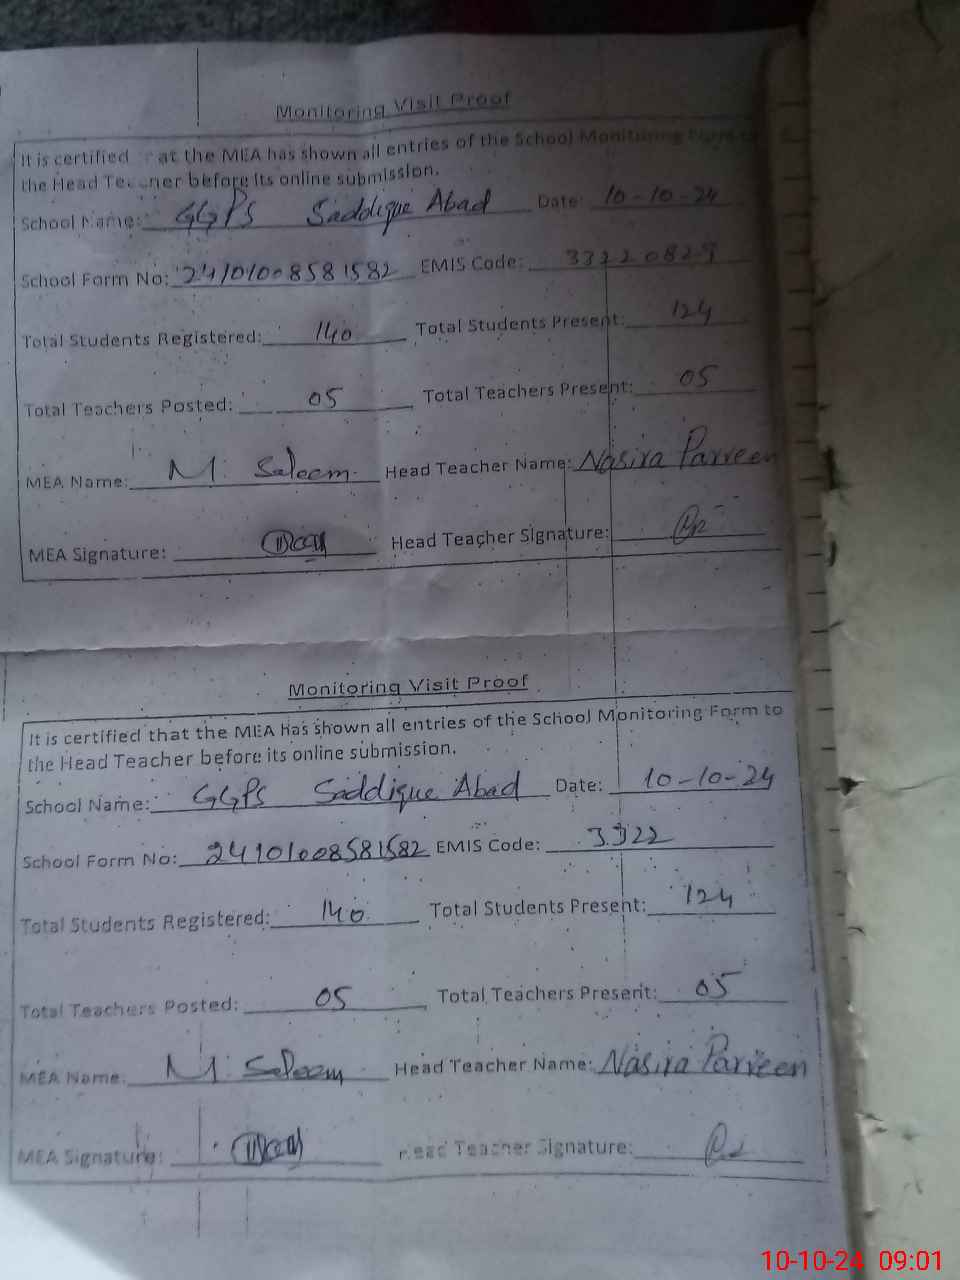 Monitoring Visit Proof
It is certified at the MEA has shown all entries of the School Monitoring
the Head before its online submission.
School Name: GGPS Saddique Abad Date: 10-10-24
School Form No: 24101008581582 EMIS Code: 33220829
Total Students Registered: 140 Total Students Present: 124
Total Teachers Posted: 05 Total Teachers Present: 05
MEA Name: M. Saleem Head Teacher Name: Nasira Parveen
MEA Signature: Head Teacher Signature:
Monitoring Visit Proof
It is certified that the MEA has shown all entries of the School Monitoring Form to
the Head Teacher before its online submission.
School Name: GGPS Saddique Abad Date: 10-10-24
School Form No: 24101008581582 EMIS Code: 3322
Total Students Registered: 140 Total Students Present: 124
Total Teachers Posted: 05 Total Teachers Present: 05
MEA Name: M. Saleem Head Teacher Name: Nasira Parveen
MEA Signature: Head Teacher Signature:
10-10-24 09:01